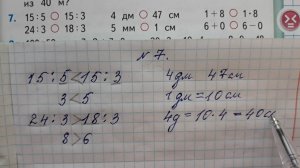 из 40 м?
7. 15:5 ○ 15:3 4 дм ○ 47 см 1+8 ○ 1·8
24:3 ○ 18:3 5 мм ○ 1 см 0+
№ 7.
15:5<15:3 4дм 47см
3<5 1дм=10см
24:3>18:3 4д=10·4=40см
8>6